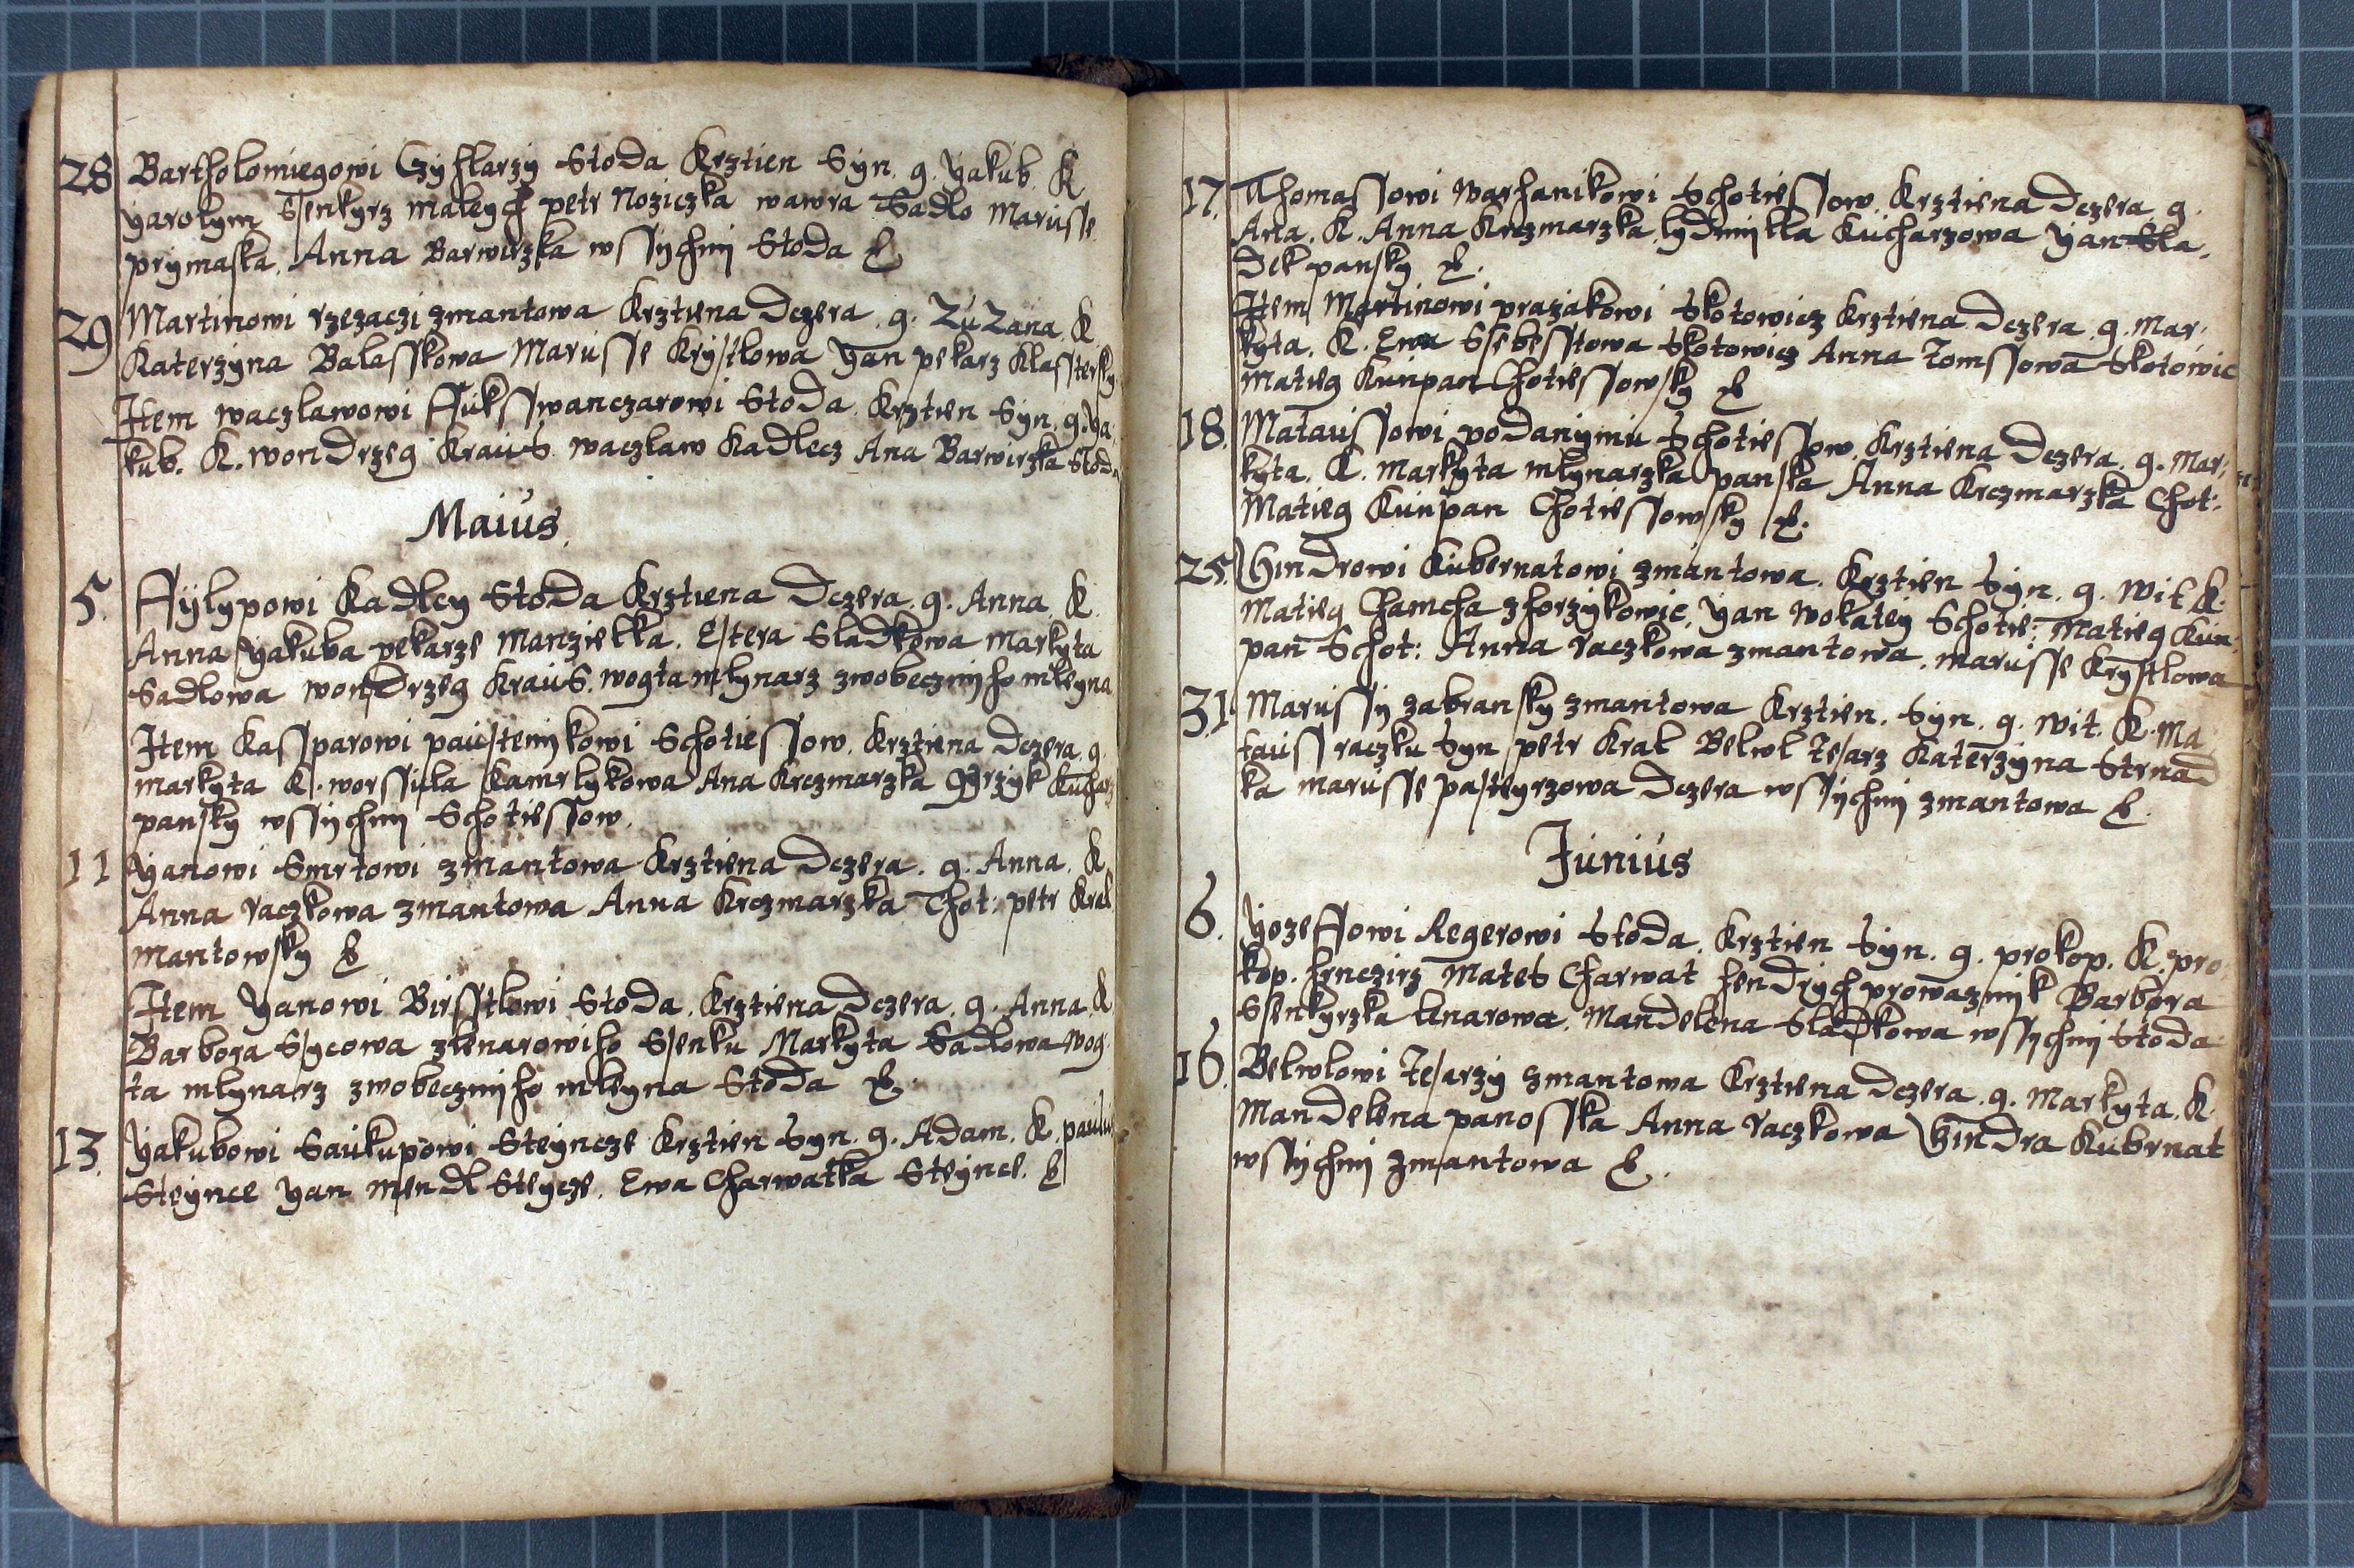 28 Bartholomiegowi Czyhlarzy Stoda Krztien Syn. g. yakub. K
yarolym Ssenkyrz maleych petr Noziczka wawra Sadlo Marusse
prymaska. Anna Barwirzka wssychni Stoda
29 Martinowi rzezaczi zmantowa Krztiena Dczera. g. ZuZana. K.
Katerzyna Balasskowa Marusse Krystlowa yan pekarz Klastersky
Item waczlawowi Fuksswanczarowi Stoda. Krztien Syn. g. ya
kub. K. wondrzeg Kraus waczlaw Kadlecz Ana Barwirzka Stoda
Maius.
5. Fylypowi Kadlcy Stoda Krztiena Dczera. g. Anna. K.
Anna yakuba pekarze Manzielka. Estera Sladkowa Markyta
Sadlowa wondrzeg Kraus. wogta mlynarz zwobeczniho mleyna
Item Kassparowi paustenikowi Schotiessow. Krztiena Dczera. g.
markyta K. worssula Kamrlykowa Ana Krczmarzka Gyrzyk Kucharz
pansky wssychni Schotiessow.
11 yanowi Smrtowi zmantowa Krztiena Dczera. g. Anna. K
Anna raczkowa zmantowa Anna Krczmarzka Chot: petr Kral
mantowsky
Item yanowi Birsstlowi Stoda. Krztiena Dczera. g. Anna. K
Barbora Sycowa zlenarowiho Ssenku Markyta Sadlowa wog
ta mlynarz zwobeczniho mleyna Stoda
13. yakubowi Saukupowi Steyncze Krztien Syn. g. Adam. K. paulus
Steynce yan mendl Steycze. Ewa Charwatka Steynce.
17. Thomassowi warhanikowi Schotiessow. Krztiena Dczera. g.
Ana. K. Anna Krczmarzka lydmylla Kucharzowa yan Sla.
dek pansky
Item Martinowi prazakowi Skotowicz Krztiena Dczera. g. Mar.
kyta. K. Ewa Ssebestowa Skotowicz Anna Tomssowa Skotowic
matieg Kunpan Chotiessowsky
18. Mataussowi podanymu Schotiessow. Krztiena Dczera. g. Mar:
kyta. K. markyta mlynarzka panska Anna Krczmarzka Chot:
Matieg Kunpan Chotiessowsky
25. Hindrowi Kubernatowi zmantowa. Krztien Syn. g. wit K.
Matieg Chamcha zhorzykowic. yan wokateg Schotie: Matieg Kun.
pan Schot: Anna raczkowa zmantowa. marusse Krystlowa
31. Marussy zabransky zmantowa Krztien. Syn. g. wit. K. Ma
tauss raczku Syn petr Kral Belwl Tesarz Katerzyna Strnad
ka marusse pasteyrzowa Dczera wssychni zmantowa
Junius
6. yozeffowi Regerowi Stoda. Krztien Syn. g. prokop. K. pro
kop. hrnczirz Mates Charwat hendrych prowaznik Barbora
Ssenkyrzka lenarowa. Mandelena Sladkowa wssychni Stoda
16. Belwlowi Tesarzy zmantowa Krztiena Dczera. g. Markyta. K.
Mandelena panosska Anna raczkowa Hindra Kubrnat
wssychni zmantowa